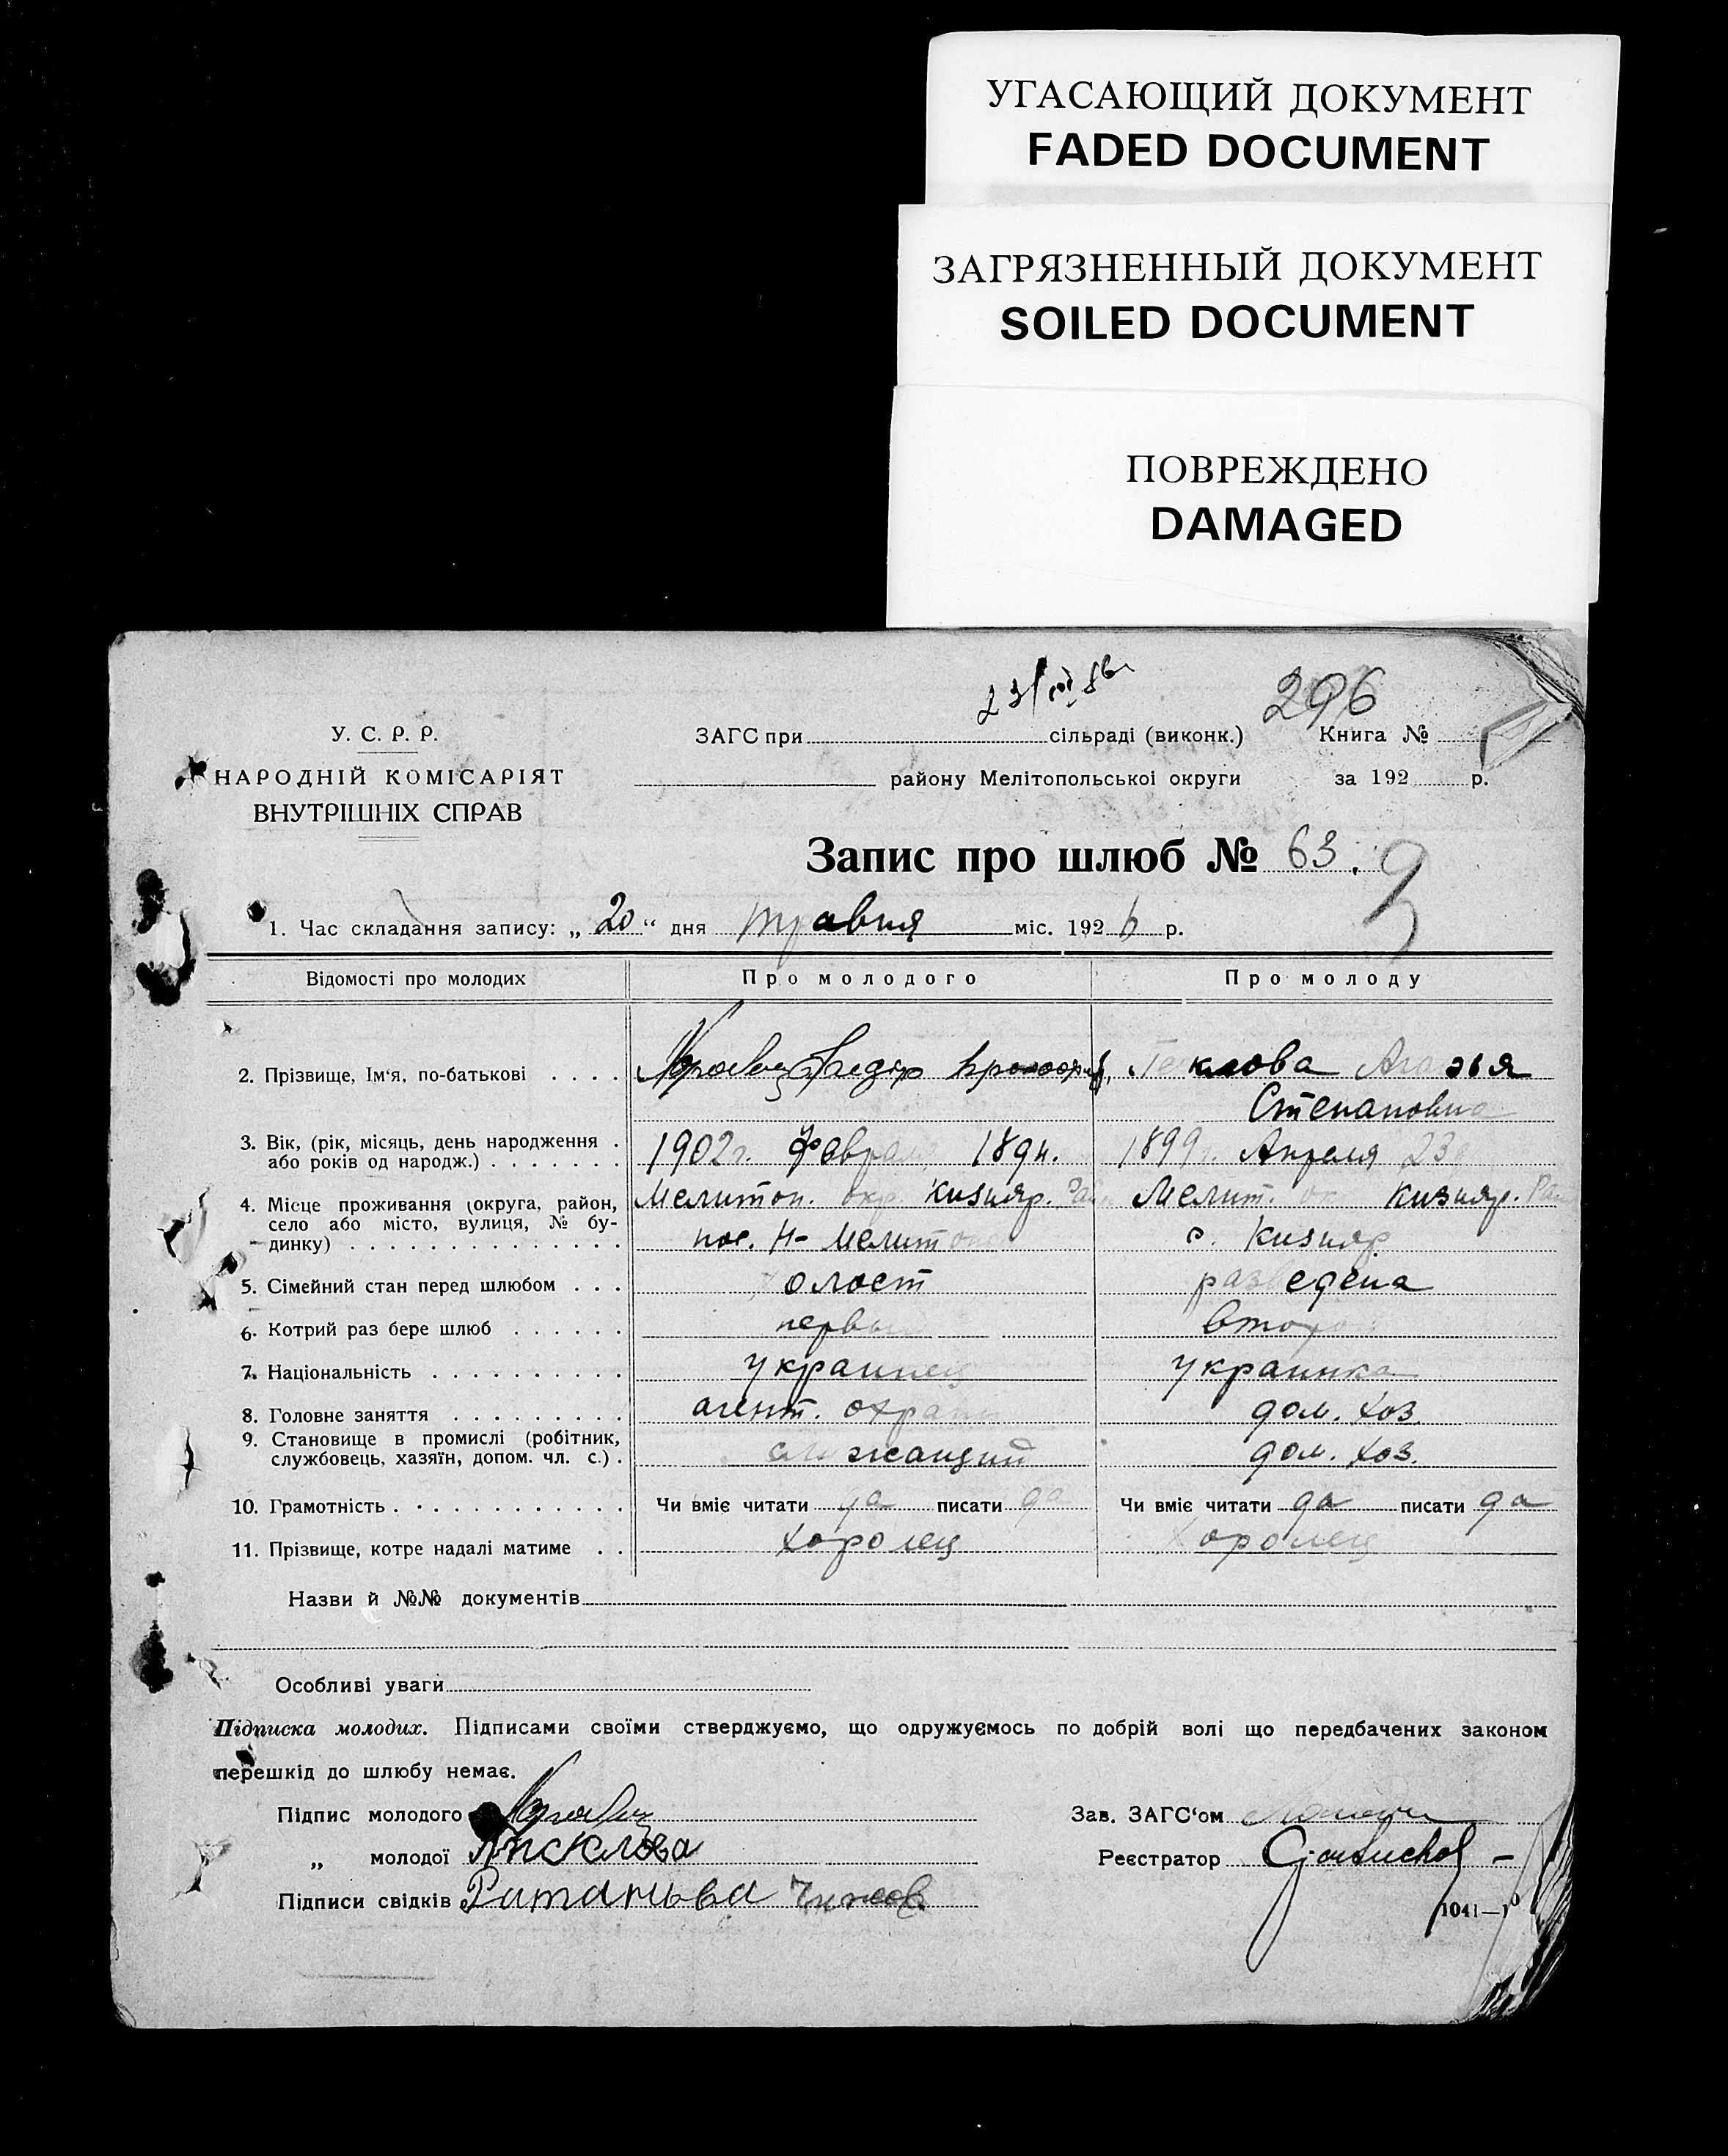 УГАСАЮЩИЙ ДОКУМЕНТ
FADED DOCUMENT
ЗАГРЯЗНЕННЫЙ ДОКУМЕНТ
SOILED DOCUMENT
ПОВРЕЖДЕНО
DAMAGED
296
У. С. Р. Р.
НАРОДНІЙ КОМІСАРІЯТ
ВНУТРІШНІХ СПРАВ
ЗАГС при сільраді (виконк.) Книга №
району Мелітопольської округи за 192 р.
Запис про шлюб № 63.
1. Час складання запису: „ 20 “ дня травня міс. 1926 р.
Відомості про молодих Про молодого Про молоду
2. Прізвище, Ім'я, по-батькові
Степановна
3. Вік, (рік, місяць, день народження або років од народж.) 1902 г. Февраля 1899 г. Апреля 23
4. Місце проживання (округа, район, село або місто, вулиця, № будинку) Мелитоп. окр. Кизияр. Рай Мелит. ок. Кизияр. Рай
пос. Н-Мелитоп с. Кизияр
5. Сімейний стан перед шлюбом холост разведена
6. Котрий раз бере шлюб первый второй
7. Національність украинец украинка
8. Головне заняття агент. охраны дом. хоз.
9. Становище в промислі (робітник, службовець, хазяїн, допом. чл. с.) служащий дом. хоз.
10. Грамотність Чи вміє читати да писати да Чи вміє читати да писати да
11. Прізвище, котре надалі матиме Хоролец Хоролец
Назви й №№ документів
Особливі уваги
Підписка молодих. Підписами своїми стверджуємо, що одружуємось по добрій волі що передбачених законом
перешкід до шлюбу немає.
Підпис молодого Зав. ЗАГС'ом
„ молодої Реєстратор
Підписи свідків